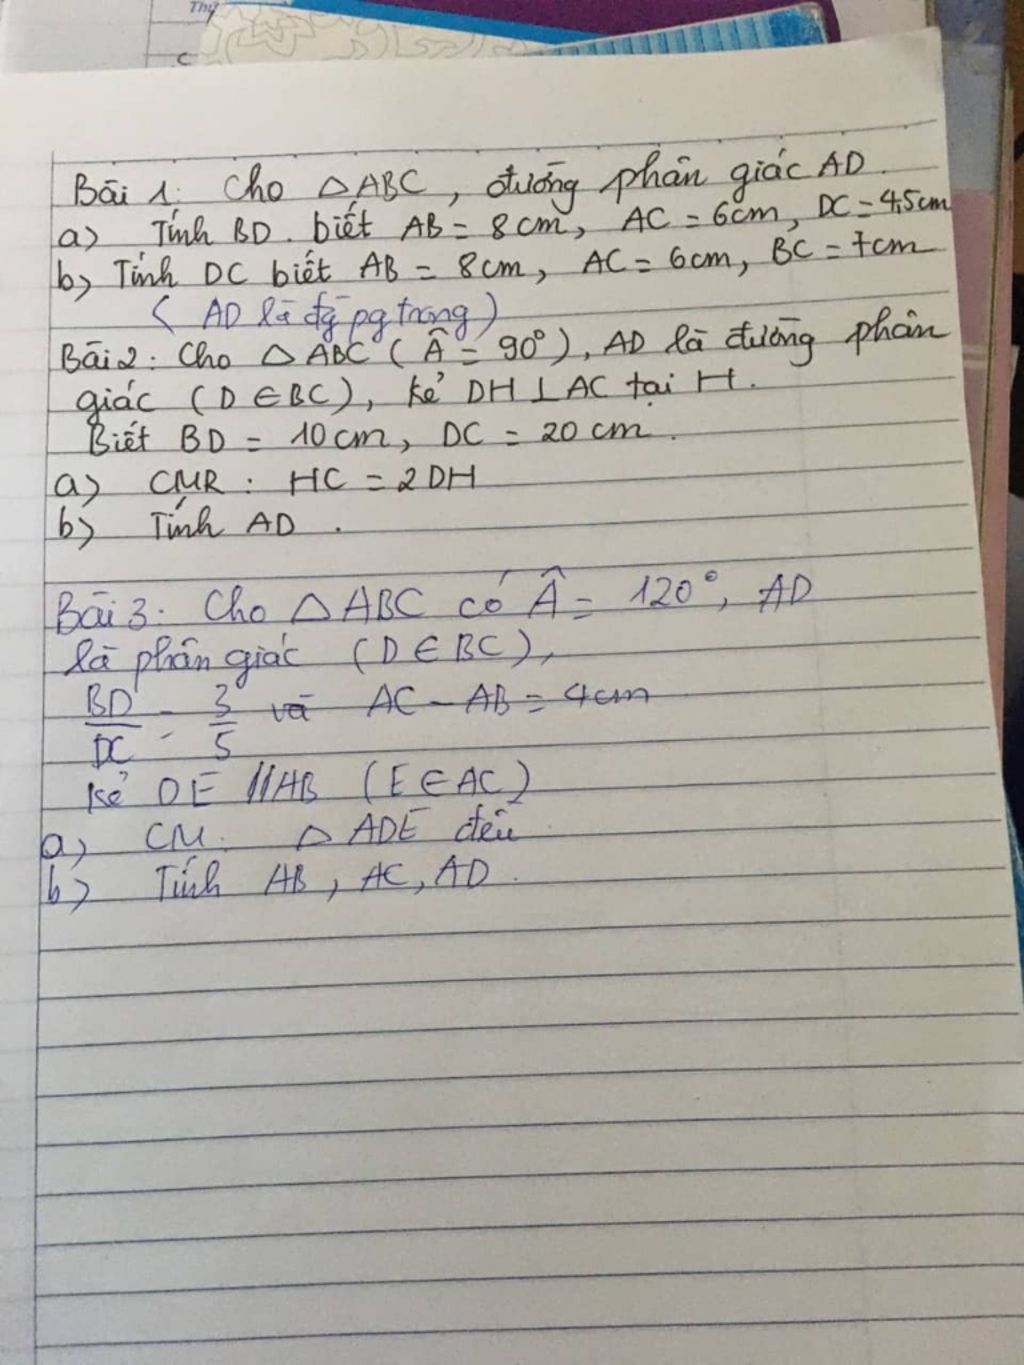 Thứ
C
Bài 1: Cho △ABC, đường phân giác AD.
a) Tính BD. biết AB = 8cm, AC = 6cm, DC = 4,5cm
b) Tính DC biết AB = 8cm, AC = 6cm, BC = 7cm
( AD là đg pg trong )
Bài 2: Cho △ABC ( Â = 90°), AD là đường phân
giác (D ∈ BC), kẻ DH ⊥ AC tại H.
Biết BD = 10cm, DC = 20 cm.
a) CMR : HC = 2DH
b) Tính AD .
Bài 3: Cho △ABC có Â = 120°, AD
là phân giác (D ∈ BC),
BD/DC = 3/5 và AC - AB = 4cm
Kẻ DE // AB (E ∈ AC)
a) CM: △ ADE đều
b) Tính AB, AC, AD.